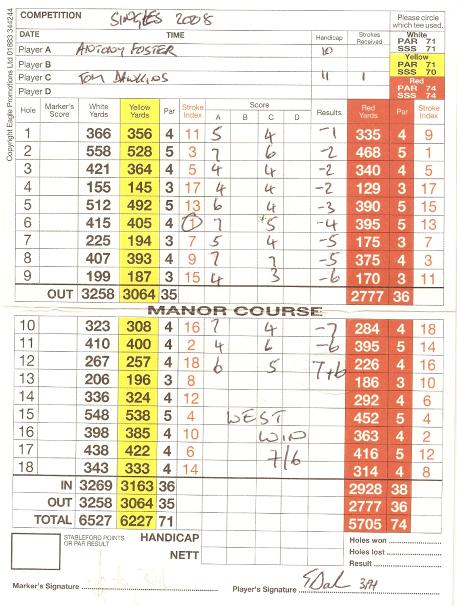 COMPETITION SINGLES 2008 Please circle which tee used.
DATE TIME Handicap Strokes Received White PAR 71 SSS 71
Player A ANTONY FOSTER 10
Player B Yellow PAR 71 SSS 70
Player C TOM DAWKINS 11 1
Player D Red PAR 74 SSS 74
Copyright Eagle Promotions Ltd 01883 344244
Hole Marker's Score White Yards Yellow Yards Par Stroke Index Score A B C D Results Red Yards Par Stroke Index
1 366 356 4 11 5 4 -1 335 4 9
2 558 528 5 3 7 6 -2 468 5 1
3 421 364 4 5 4 4 -2 340 4 5
4 155 145 3 17 4 4 -2 129 3 17
5 512 492 5 13 6 4 -3 390 5 15
6 415 405 4 1 7 5 -4 395 5 13
7 225 194 3 7 5 4 -5 175 3 7
8 407 393 4 9 7 7 -5 375 4 3
9 199 187 3 15 4 3 -6 170 3 11
OUT 3258 3064 35 2777 36
MANOR COURSE
10 323 308 4 16 7 4 -7 284 4 18
11 410 400 4 2 4 6 -6 395 5 14
12 267 257 4 18 6 5 7+6 226 4 16
13 206 196 3 8 186 3 10
14 336 324 4 12 292 4 6
15 548 538 5 4 WEST 452 5 4
16 398 385 4 10 WIN 363 4 2
17 438 422 4 6 7/6 416 5 12
18 343 333 4 14 314 4 8
IN 3269 3163 36 2928 38
OUT 3258 3064 35 2777 36
TOTAL 6527 6227 71 5705 74
STABLEFORD POINTS OR PAR RESULT HANDICAP Holes won
NETT Holes lost
Result
Marker's Signature Player's Signature